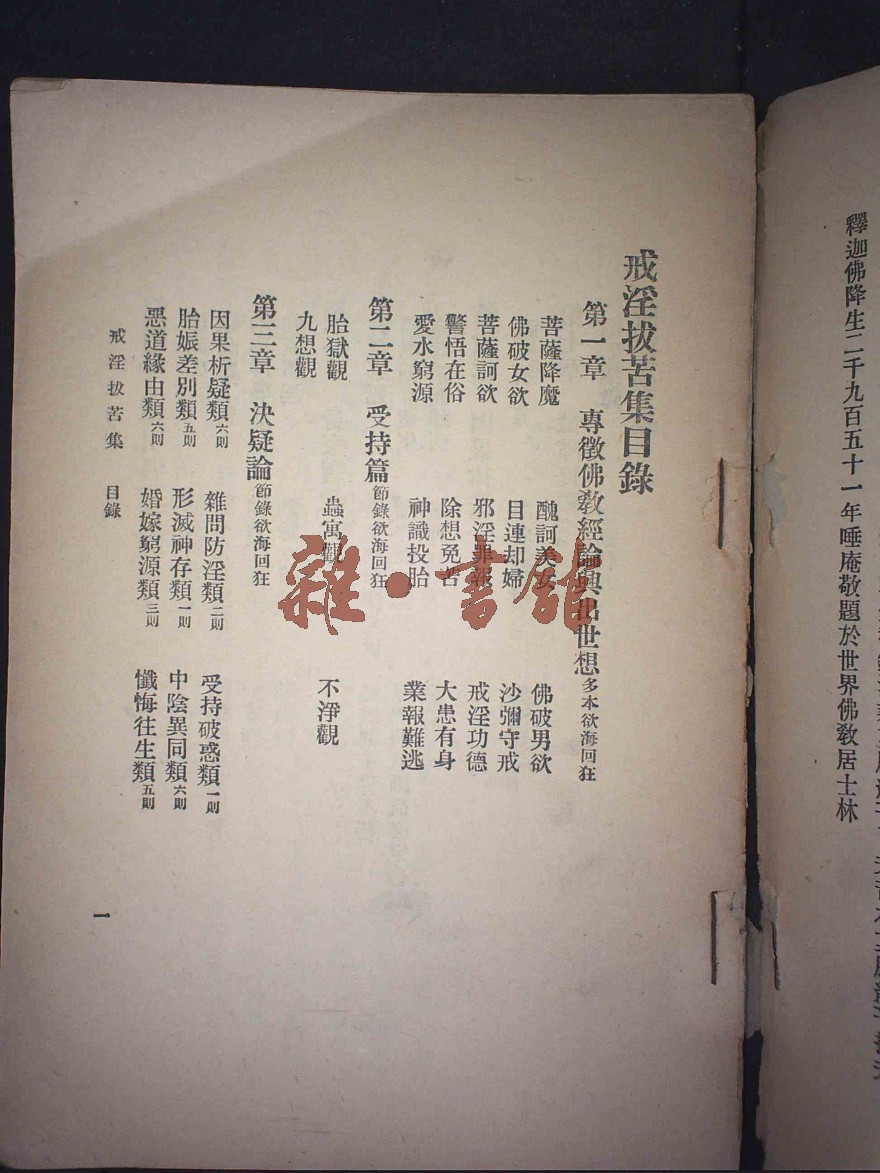 釋迦佛降生二千九百五十一年唾庵敬題於世界佛敎居士林
戒淫拔苦集目錄
第一章　專徵佛敎經論興出世想多本欲海回狂
菩薩降魔　醜訶美女　佛破男欲
佛破女欲　目連却婦　沙彌守戒
菩薩訶欲　邪淫罪報　戒淫功德
警悟在俗　除想免苦　大患有身
愛水窮源　神識投胎　業報難逃
第二章　受持篇節錄欲海回狂
胎獄觀　蟲寓觀　不淨觀
九想觀
第三章　決疑論節錄欲海回狂
因果析疑類六則　雜問防淫類二則　受持破惑類一則
胎娠差別類五則　形滅神存類一則　中陰異同類六則
惡道緣由類六則　婚嫁窮源類三則　懺悔往生類五則
戒淫拔苦集　目錄
一
雜·書館